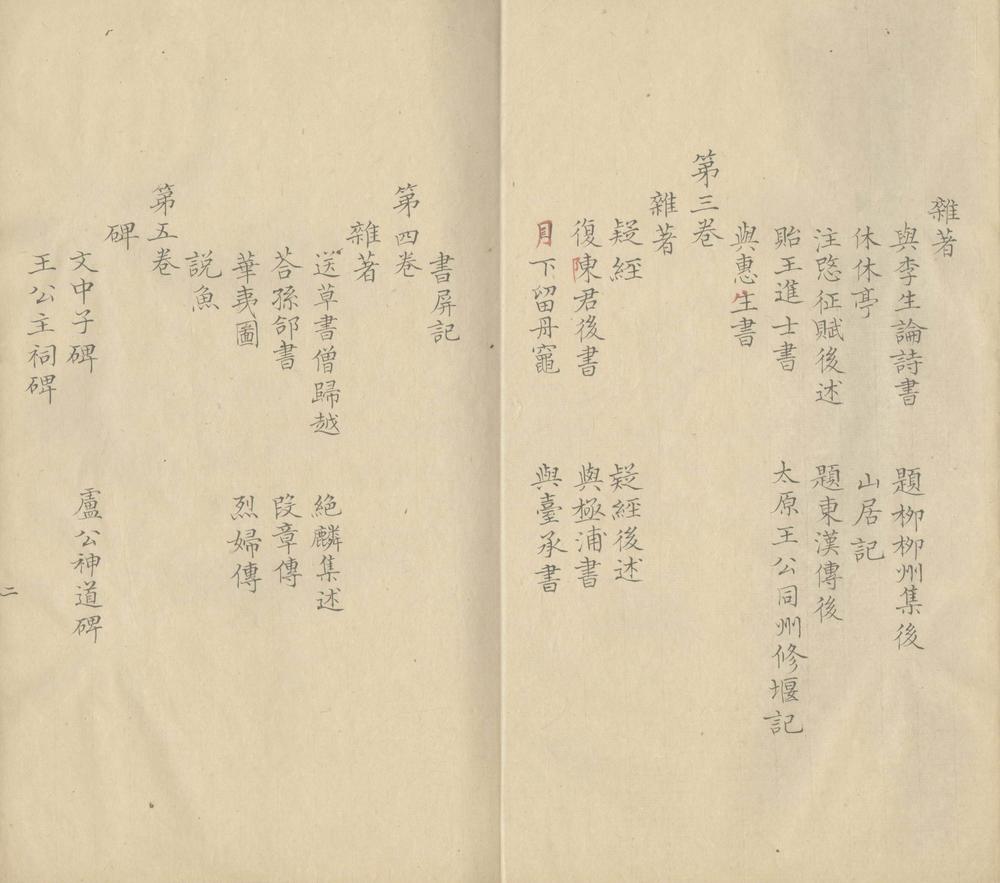 雜著
與李生論詩書 題柳柳州集後
休休亭 山居記
注愍征賦後述 題東漢傳後
貽王進士書 太原王公同州修堰記
與惠生書
第三卷
雜著
疑經 疑經後述
復陳君後書 與極浦書
月下留丹竈 與臺丞書
書屏記
第四卷
雜著
送草書僧歸越 絕麟集述
荅孫郃書 段章傳
華夷圖 烈婦傳
説魚
第五卷
碑
文中子碑 盧公神道碑
王公主祠碑
二